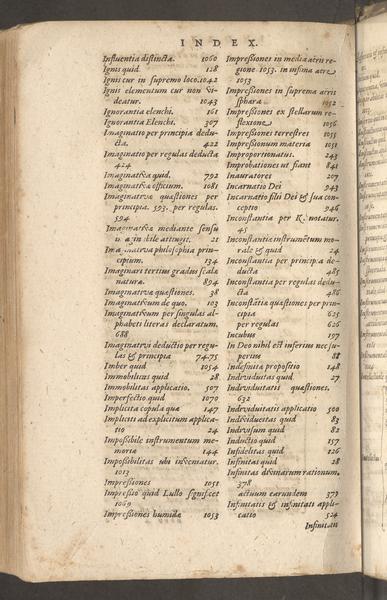 INDEX.
Influentia distincta. 1060
Ignis quid 128
Ignis cur in supremo loco. 1042
Ignis elementum cur non vi-
deatur. 1043
Ignorantia elenchi. 161
Ignorantia Elenchi. 307
Imaginatio per principia dedu-
cta. 422
Imaginatio per regulas deducta
424
Imaginatiua quid. 792
Imaginatiuæ officium. 1081
Imaginatiuæ quæstiones per
principia. 593. per regulas.
594
Imaginatiua mediante sensu
attingit. 21
Imaginatiua philosophia prin-
cipium. 134
Imaginari tertius gradus scalæ
naturæ. 894
Imaginatiua quæstiones. 38
Imaginatiuum de quo. 103
Imaginatiuum per singulas al-
phabeti literas declaratum.
688
Imaginatiui deductio per regu-
las & principia 74.75
Imber quid 1054
Immobilitas quid 28
Immobilitas applicatio. 507
Imperfectio quid 1070
Implicita copula quæ 147
Impliciti ad explicitum applica-
tio 24
Impossibile instrumentum me-
moriæ 144
Impossibilitas ubi inveniatur.
1013
Impressiones 1051
Impressio quid Lullo significet
1069
Impressiones humidæ 1053
Impressiones in media aeris re-
gione 1053. in infima aere
1053
Impressiones in suprema aeris
sphæra 1052
Impressiones ex stellarum re-
flexione 1056
Impressiones terrestres 1055
Impressionum materia 1051
Improportionatus. 243
Improbationes ut fiant 841
Inauratores 207
Incarnatio Dei 943
Incarnatio filii Dei & sua con-
ceptio 946
Inconstantia per K. notatur.
45
Inconstantia instrumentum mo-
rale & quid 24
Inconstantia per principia de-
ducta 485
Inconstantia per regulas dedu-
cta 486
Inconstãtia quæstiones per prin-
cipia 625
per regulas 626
Incubus 197
In Deo nihil est inferius nec su-
perius 88
Indefinita propositio 148
Individuitas quid 27
Individuitatis quæstiones.
632
Individuitatis applicatio 500
Individuitas quid 83
Individuum quid 82
Inductio quid 157
Infidelitas quid 126
Infinitas quid 28
Infinitas divinarum rationum.
378
actuum earundem 379
Infinitatis & infinitati appli-
catio 524
Infinitati